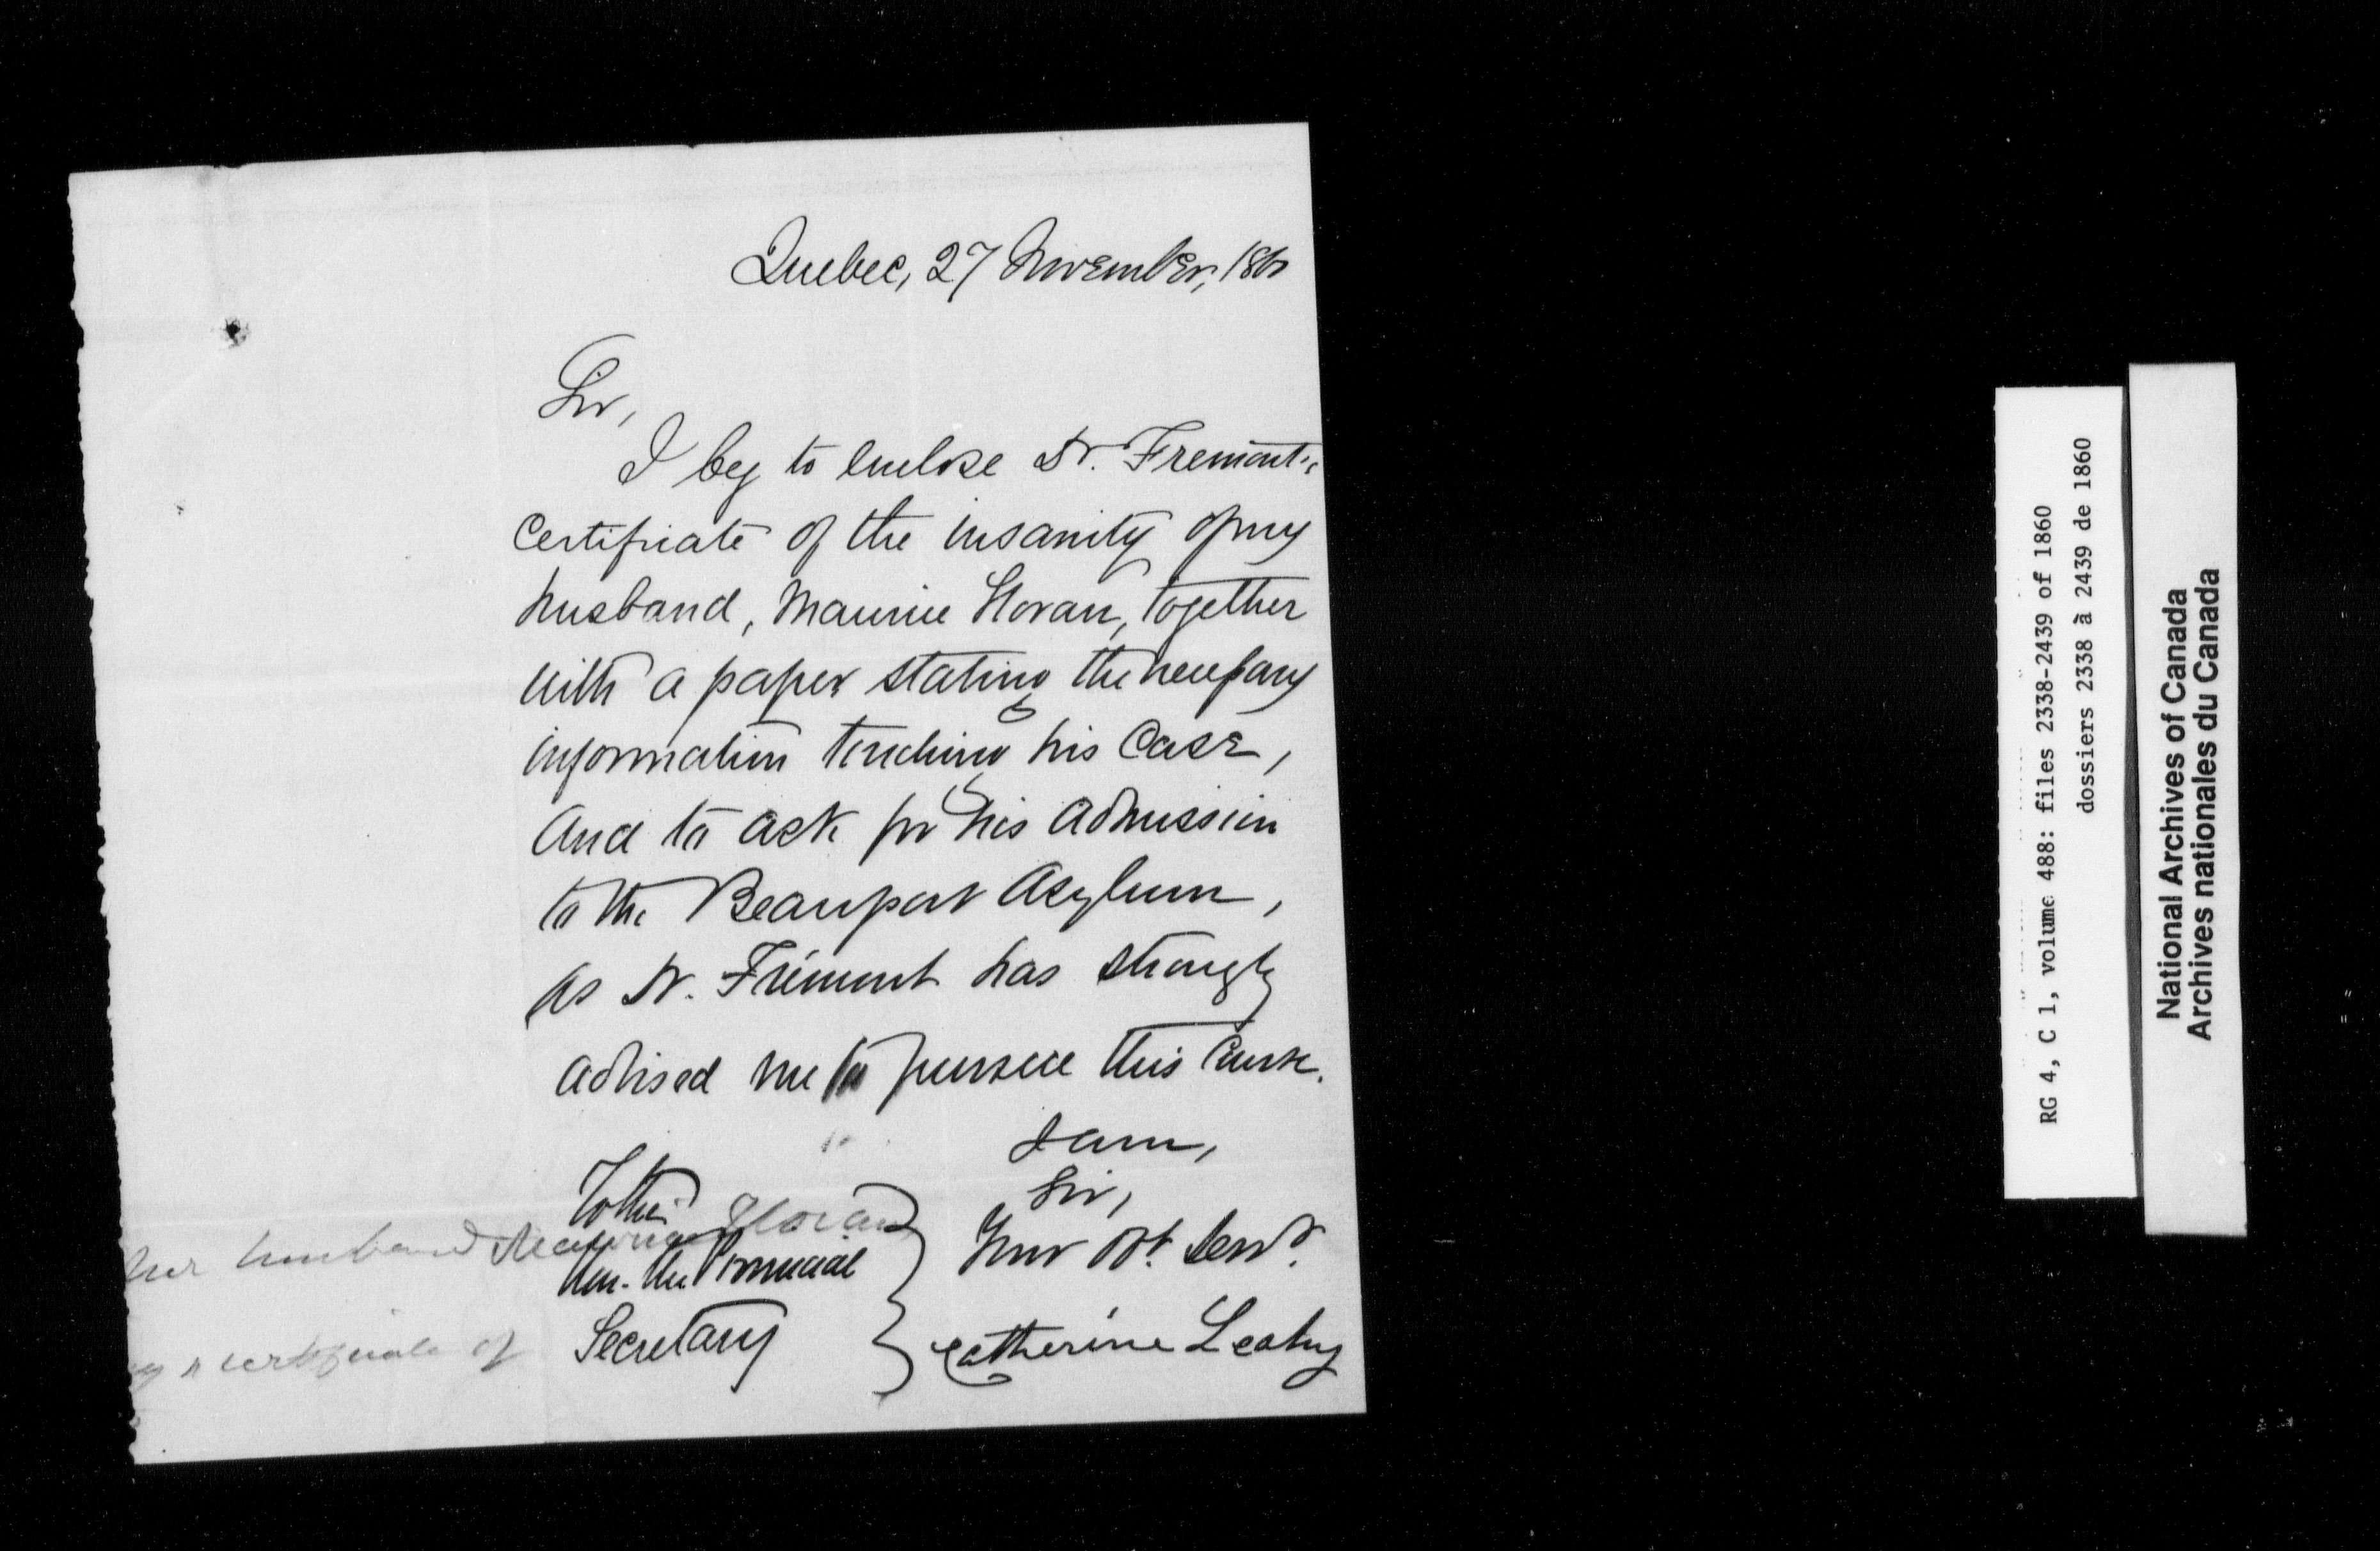 Quebec, 27 November, 1860
Sir,
I beg to enclose Dr. Fremont's
Certificate of the insanity of my
husband, Maurice Horan, together
with a paper stating the necessary
information touching his Case,
and to ask for his admission
to the Beauport Asylum,
as Dr. Frémont has strongly
advised me to pursue this Course.
I am,
Sir,
Your Obt. Servt.
Catherine Leahy
To the
Hon. the Provincial
Secretary
her husband Maurice Horan
a certificate of
RG 4, C 1, volume 488: files 2338-2439 of 1860
dossiers 2338 à 2439 de 1860
National Archives of Canada
Archives nationales du Canada